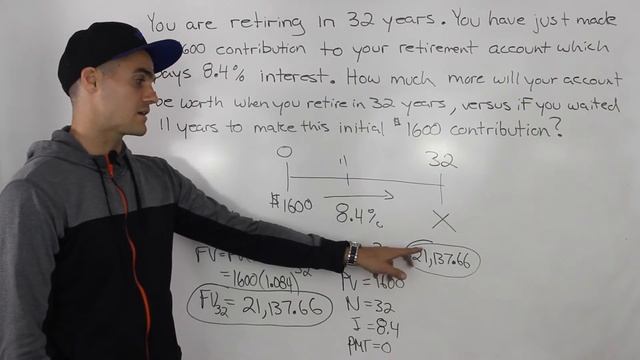 You are retiring in 32 years. You have just made
1600 contribution to your retirement account which
pays 8.4% interest. How much more will your account
be worth when you retire in 32 years, versus if you waited
11 years to make this initial $1600 contribution?
0 11 32
$1600 8.4% X
FV=
21,137.66
=1600(1.084)^32
PV =1600
FV32 = 21,137.66
N=32
I=8.4
PMT=0